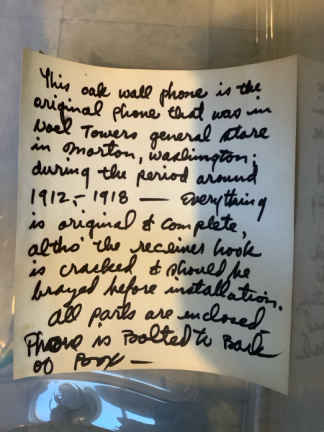 This oak wall phone is the
original phone that was in
Noel Towers general store
in Morton, Washington;
during the period around
1912,- 1918 — Everything
is original & complete,
altho' the receiver hook
is cracked & should be
brazed before installation.
All parts are enclosed
Phone is Bolted to Back
of Box —